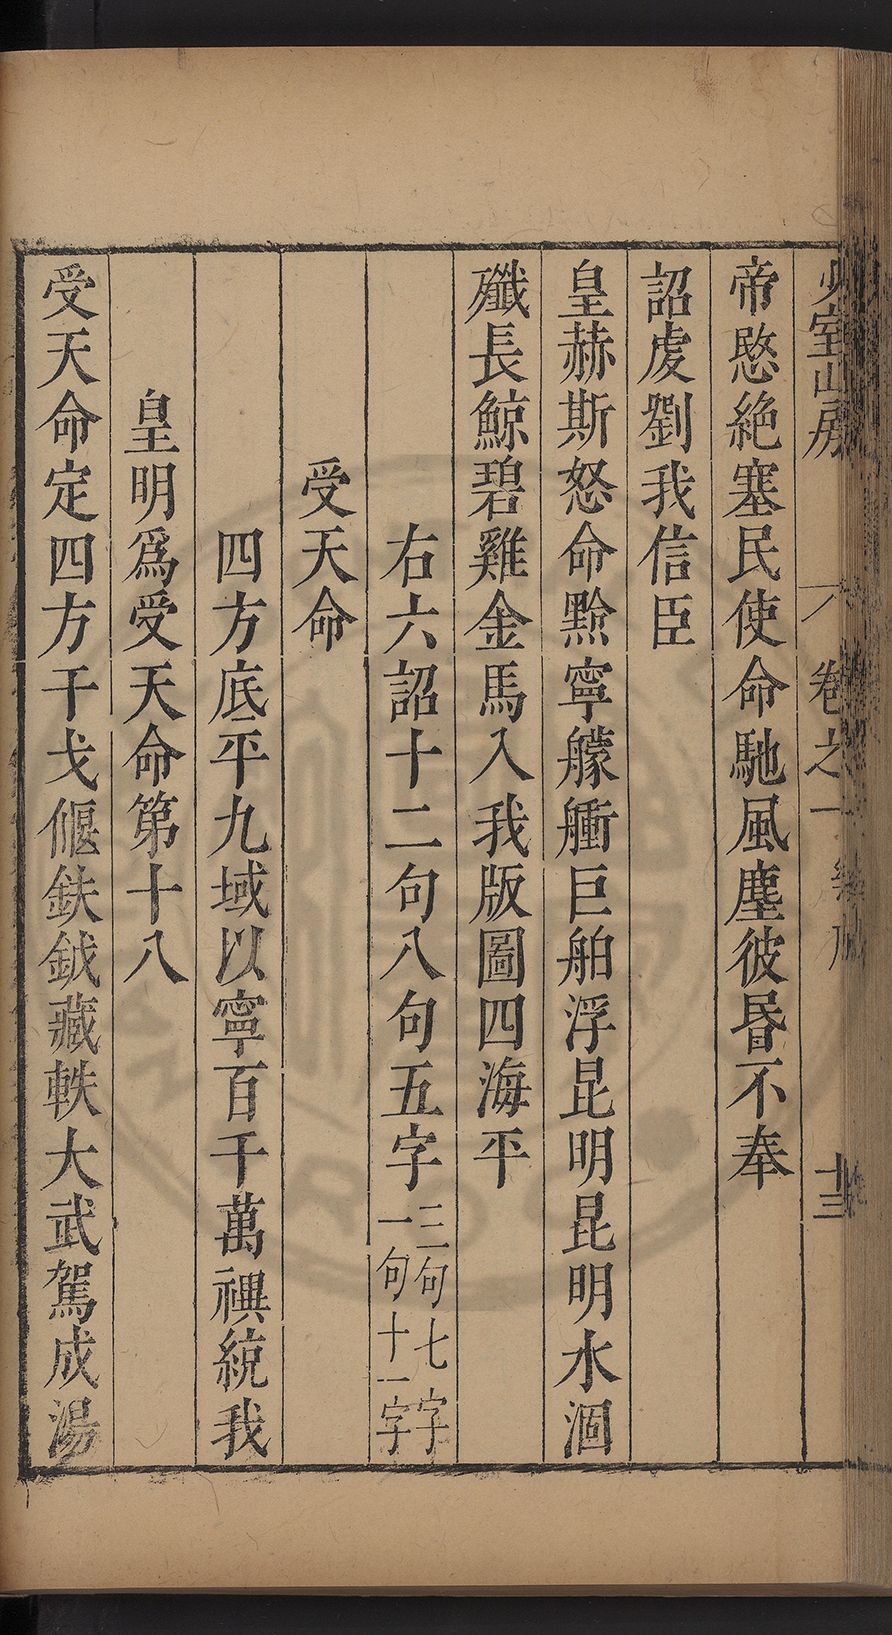 少室山房 卷之一 十三
帝愍絶塞民使命馳風塵彼昬不奉
詔虔劉我信臣
皇赫斯怒命黔寧艨艟巨舶浮昆明昆明水涸
殲長鯨碧雞金馬入我版圖四海平
右六詔十二句八句五字三句七字一句十一字
受天命
四方底平九域以寧百千萬禩統我
皇明爲受天命第十八
受天命定四方干戈偃鈇鉞藏軼大武駕成湯